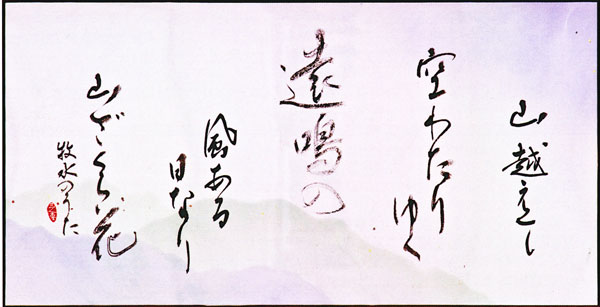 山越えて
空わたり
ゆく
遠鳴の
風ある
日なり
山ざくら花
牧水のうた